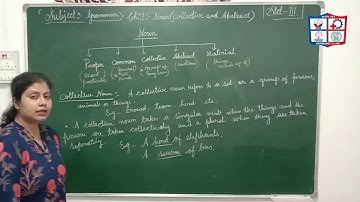 Subject: Grammar Ch-2: Noun (Collective and Abstract) Std - III
Noun
Proper Common Collective Abstract Material
Collective Noun: A collective noun refers to a set or a group of persons,
animals or things.
Eg - crowd, team, herd etc.
A collective noun takes a singular verb when the things and the
persons are taken collectively and a plural when thing are taken
separately. Eg - A herd of elephants.
A swarm of bees.